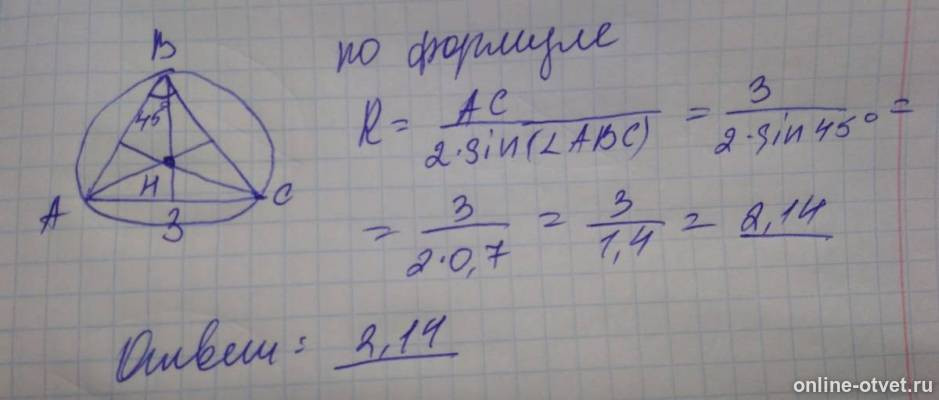 B
45°
H
A
C
3
по формуле
R = AC / 2·sin(∠ABC) = 3 / 2·sin 45° =
= 3 / 2·0,7 = 3 / 1,4 = 2,14
Ответ: 2,14
online-otvet.ru